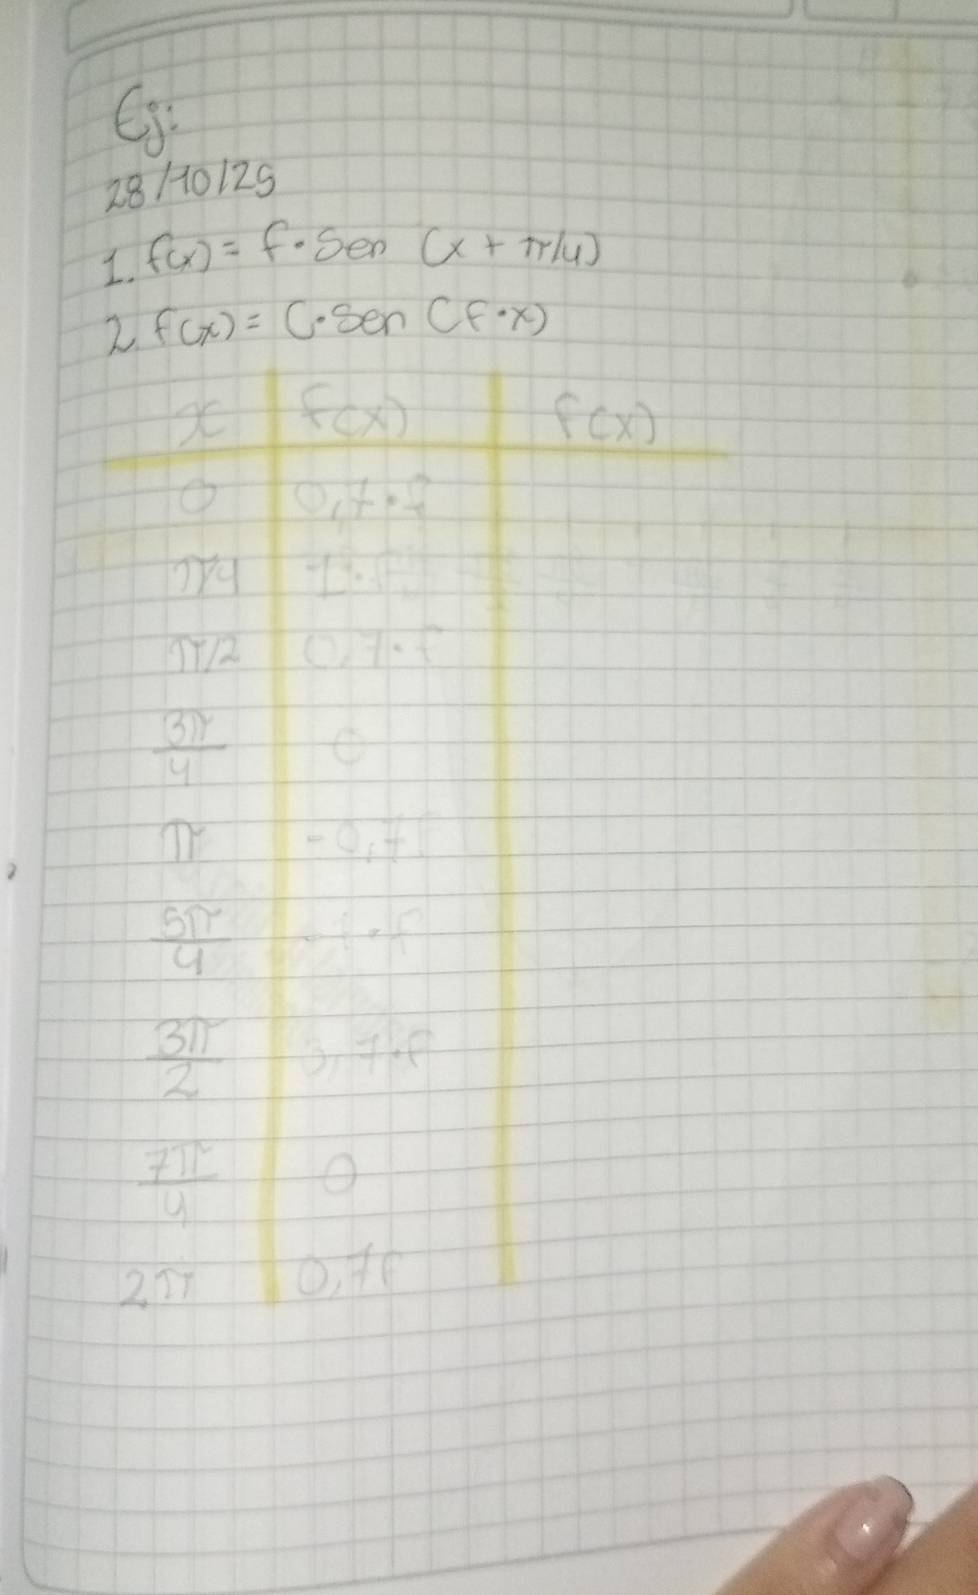 Ej:
28/10/25
1. f(x) = f · Sen (x + π/4)
2. f(x) = C · Sen (f · x)
x f(x) f(x)
0 0,7 · f
π/4 1 · f
π/2 0,7 · f
3π/4 0
π -0,7f
5π/4 -1 · f
3π/2 0,7 · f
7π/4 0
2π 0,7f